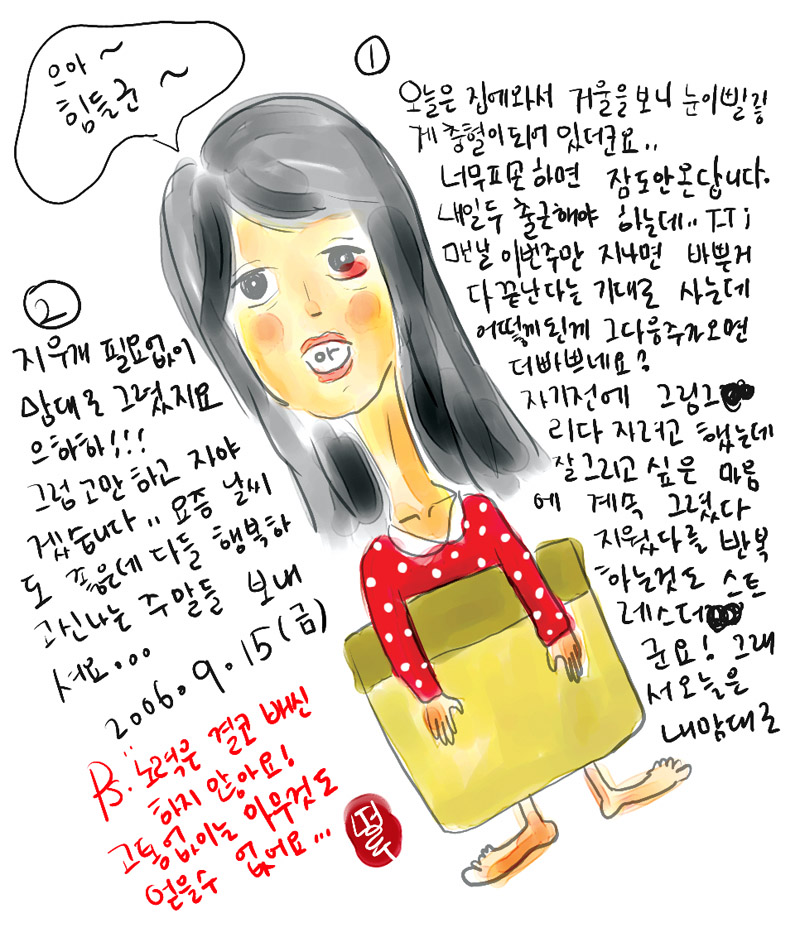 으아~
힘들군~
①
오늘은 집에와서 거울을보니 눈이빨갛
게 충혈이되어 있더군요..
너무피곤하면 잠도안온답니다.
내일두 출근해야 하는데.. T.T;
맨날 이번주만 지나면 바쁜거
다끝난다는 기대로 사는데
어떻게된게 그다음주가오면
더바쁘네요?
자기전에 그림그
리다 자려고 했는데
잘그리고 싶은 마음
에 계속 그렸다
지웠다를 반복
하는것도 스트
레스더
군요! 그래
서오늘은
내맘대로
②
지우개 필요없이
맘대로 그렸지요
으하하!!!
그럼 고만하고 자야
겠습니다.. 요즘 날씨
도 좋은데 다들 행복하
고신나는 주말들 보내
셔요...
2006.9.15(금)
P.S: 노력은 결코 배신
하지 않아요!
고통없이는 아무것도
얻을수 없어요...
아